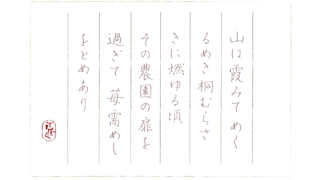 山は霞みてめく
るめき桐むらさ
きに燃ゆる頃
その農園の扉を
過ぎて苺需めし
をとめあり